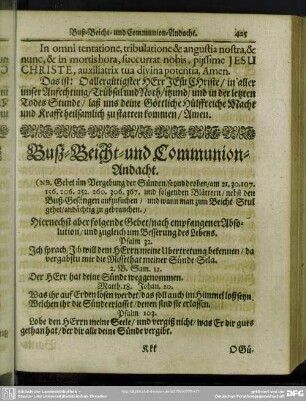 Buß-Beicht- und Communion-Andacht. 425
In omni tentatione, tribulatione & angustia nostra, &
nunc, & in mortis hora, succurrat nobis, piissime JESU
CHRISTE, auxiliatrix tua divina potentia, Amen.
Das ist: O allergütigster HErr JEsu Christe / in aller
unser Anfechtung / Trübsal und Noth / itzund / und in der letzten
Todes Stunde / laß uns deine Göttliche Hülffreiche Macht
und Krafft heilsamlich zu statten kommen / Amen.
Buß-Beicht- und Communion-
Andacht.
(NB. Gebet um Vergebung der Sünden / droben / am 21. 30. 107.
156. 206. 252. 260. 206. 367. und folgenden Blätern / nebst den
Buß-Gesängen aufzusuchen / und wann man zum Beicht-Stul
gehet / andächtig zu gebrauchen.)
Hiernechst aber folgende Gebet / nach empfangener Abso-
lution / und zugleich um Besserung des Lebens.
Psalm 32.
Ich sprach / Ich will dem HErrn meine Ubertretung bekennen / da
vergabstu mir die Missethat meiner Sünde Sela.
2. B. Sam. 12.
Der HErr hat deine Sünde weggenommen.
Matth. 18. Johan. 20.
Was ihr auf Erden lösen werdet / das soll auch im Himmel loß seyn.
Welchen ihr die Sünde erlasset / denen sind sie erlassen.
Psalm 103.
Lobe den HErrn meine Seele / und vergiß nicht / was Er dir guts
gethan hat / der dir alle deine Sünde vergibt.
Kkk O Gü-